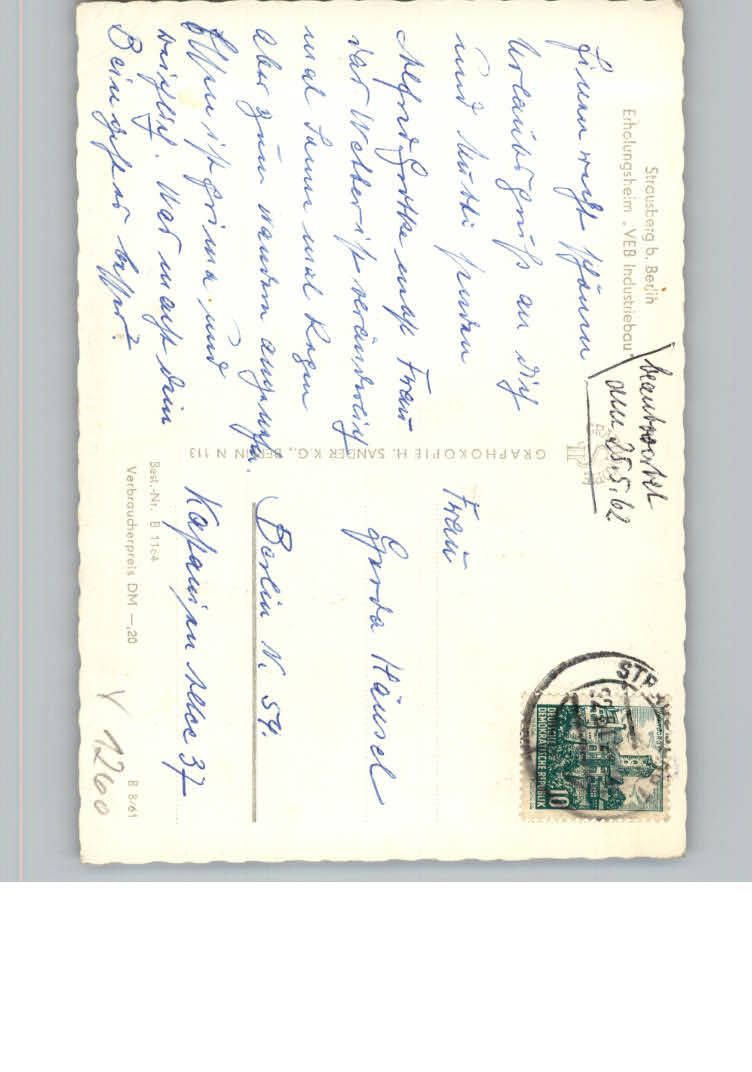 Strausberg b. Berlin
Erholungsheim „VEB Industriebau"
beantwortet
am 25.5.62
Einen recht schönen
Urlaubsgruß an Dich
und Mutti senden
Alfred Grothe nebst Frau
das Wetter ist veränderlich
mal Sonne mal Regen
aber zum wandern angenehm.
Essen ist prima und
reichlich. Was macht Dein
Bein geht es besser?
GRAPHOKOPIE H. SANDER K.G., BERLIN N 113
Frau
Gerda Häusel
Berlin N. 54.
Kastanien Allee 37
Best.-Nr. B 1164
Verbraucherpreis DM –,20
B 8/61
Y 1260
STRAUSBERG
DEUTSCHE
DEMOKRATISCHE REPUBLIK
10